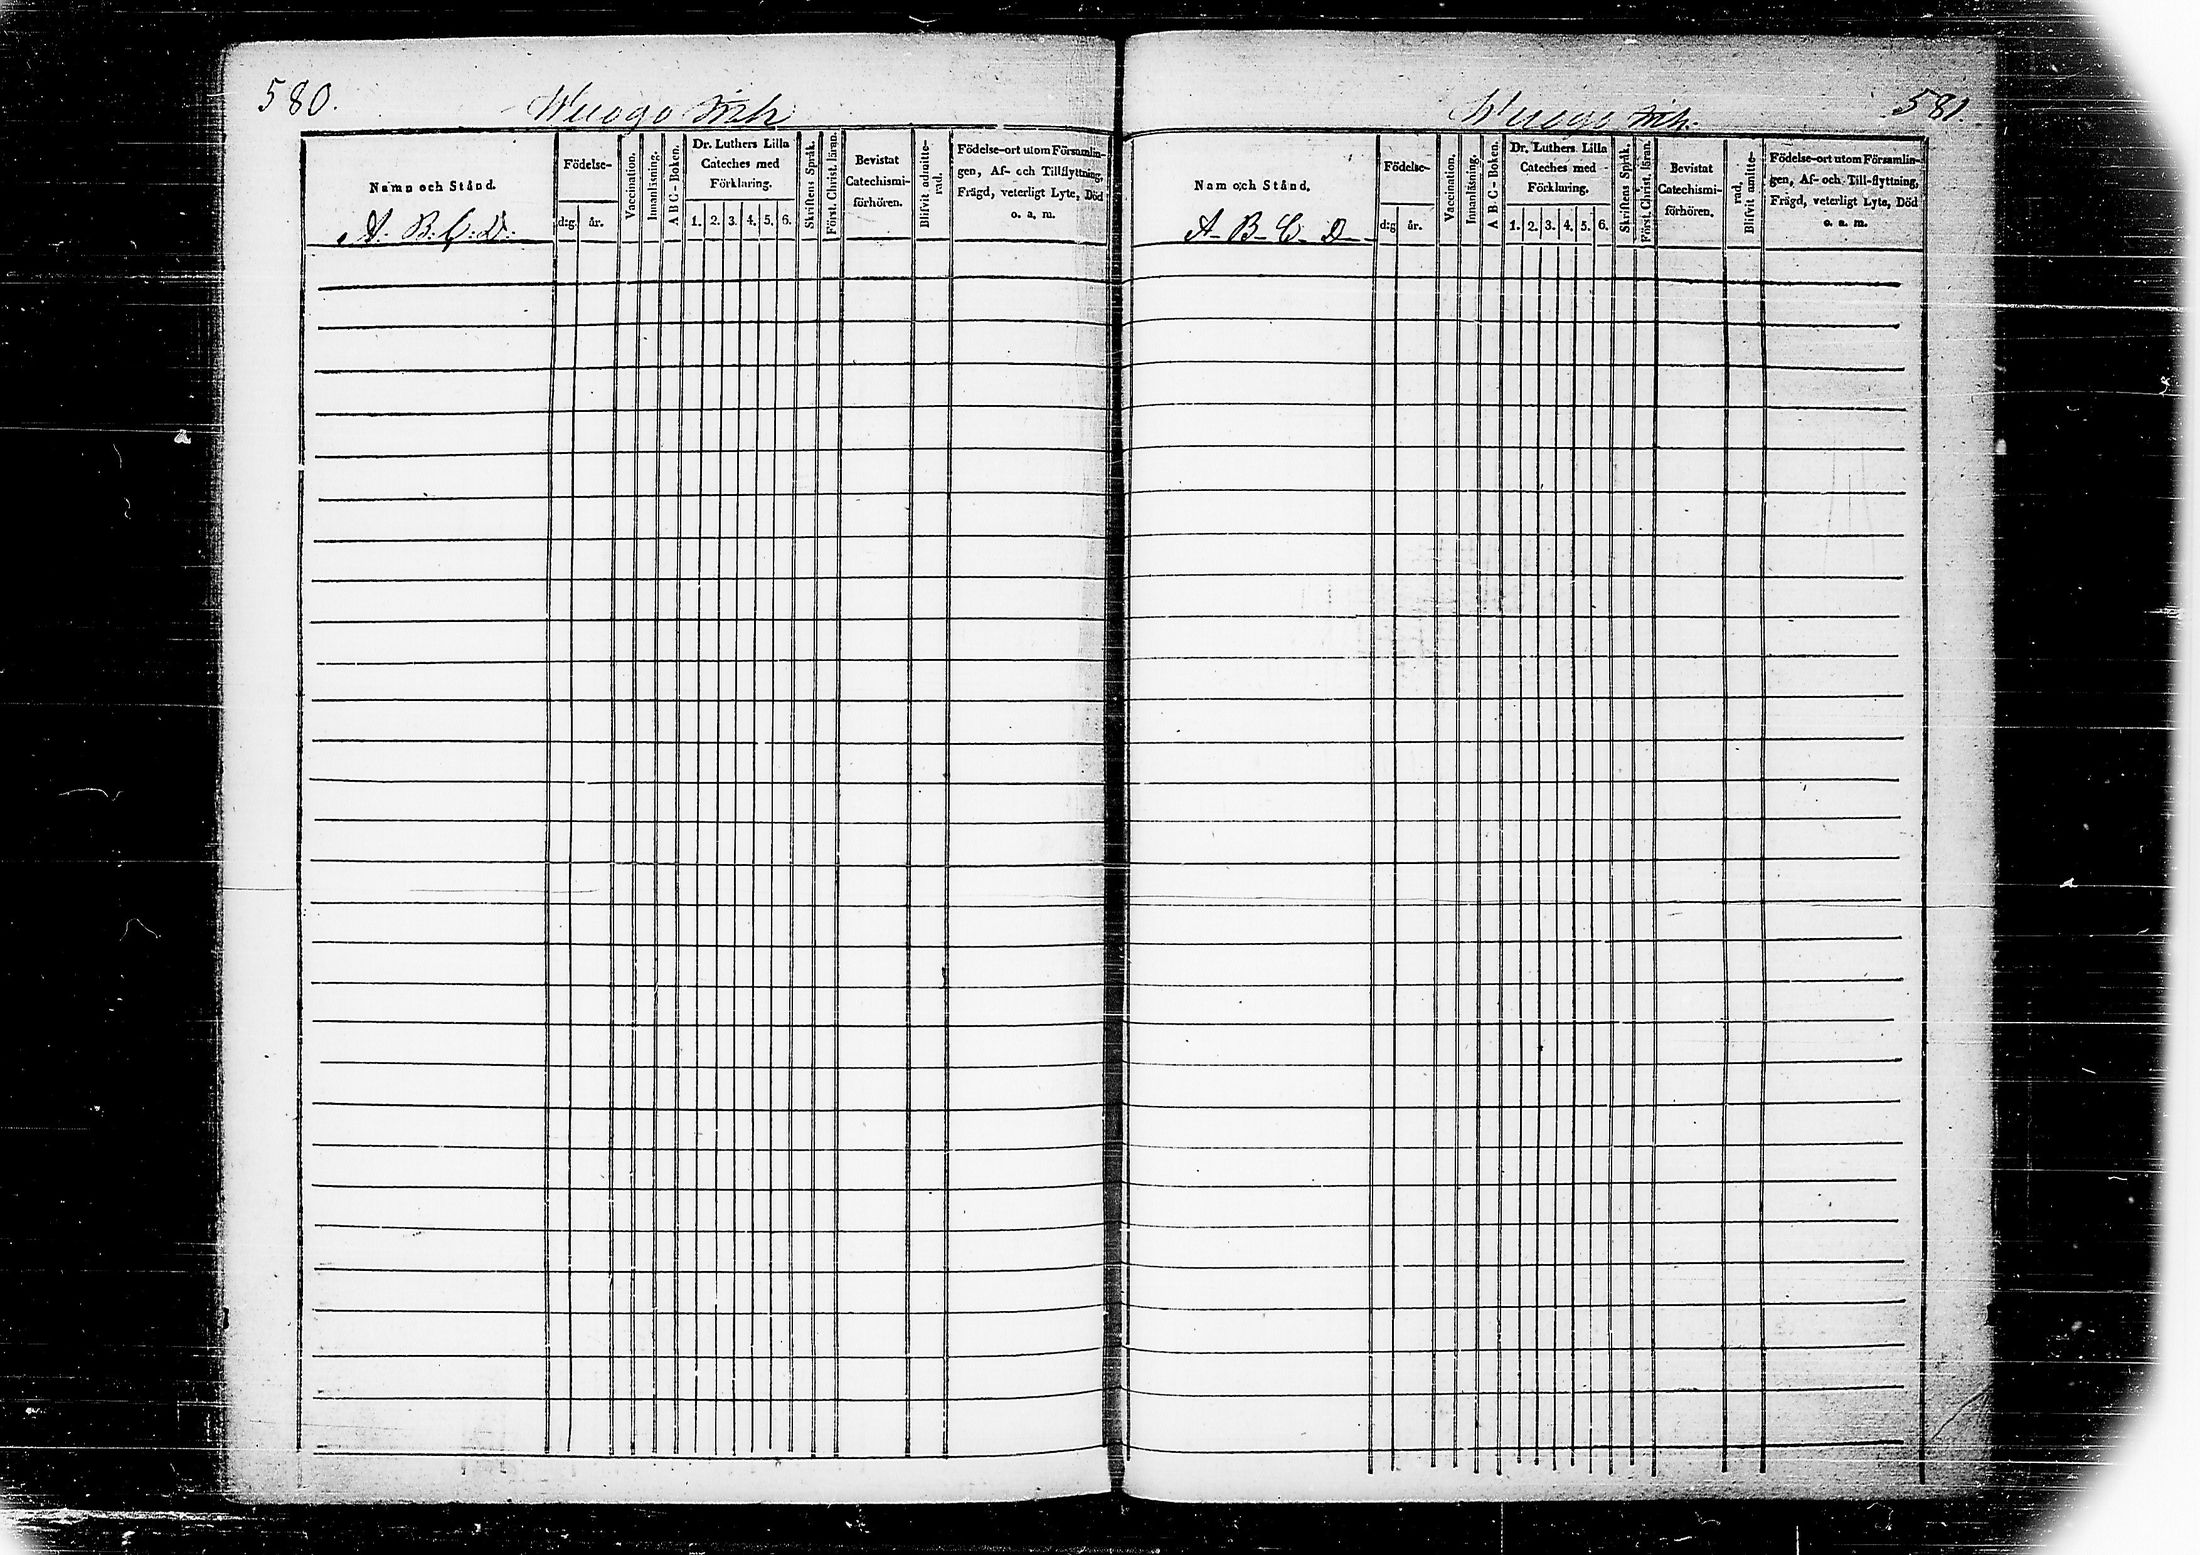 580.
Wuogo
Namn och Stånd.
A. B. C. D.
Födelse-
d:g. år.
Vaccination.
Innanläsning.
A B C - Boken.
Dr. Luthers Lilla
Cateches med
Förklaring.
1. 2. 3. 4. 5. 6.
Skriftens Språk.
Först. Christ. läran.
Bevistat
Catechismi-
förhören.
Blifvit admitte-
rad.
Födelse-ort utom Församlin-
gen, Af- och Tillflyttning,
Frägd, veterligt Lyte, Död
o. a. m.
581.
Wuogo
Nam och Stånd.
A- B- C- D-
Födelse-
d:g år.
Vaccination.
Innanläsning.
A B C - Boken.
Dr. Luthers Lilla
Cateches med
Förklaring.
1. 2. 3. 4. 5. 6.
Skriftens Språk.
Först. Christ. läran.
Bevistat
Catechismi-
förhören.
rad,
Blifvit amitte-
Födelse-ort utom Församlin-
gen, Af- och Till-flyttning,
Frägd, veterligt Lyte, Död
o. a. m.